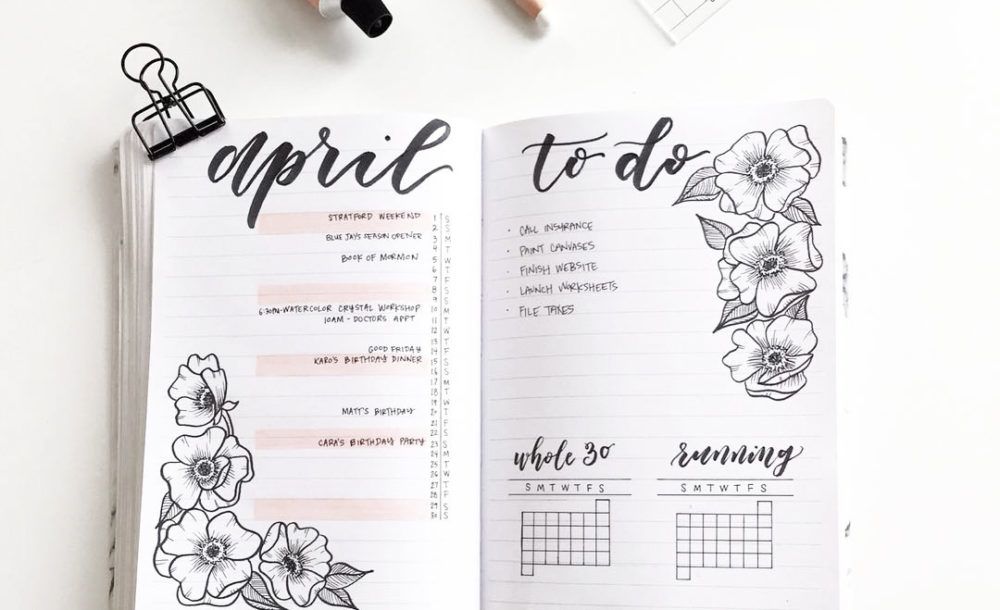 april
STRATFORD WEEKEND 1 S
2 S
BLUE JAYS SEASON OPENER 3 M
4 T
BOOK OF MORMON 5 W
6 T
7 F
8 S
9 S
6:30PM-WATERCOLOR CRYSTAL WORKSHOP 10 M
10AM - DOCTORS APPT 11 T
12 W
13 T
GOOD FRIDAY 14 F
KARO'S BIRTHDAY DINNER 15 S
16 S
17 M
18 T
19 W
MATT'S BIRTHDAY 20 T
21 F
22 S
CARA'S BIRTHDAY PARTY 23 S
24 M
25 T
26 W
27 T
28 F
29 S
30 S
to do
· CALL INSURANCE
· PAINT CANVASES
· FINISH WEBSITE
· LAUNCH WORKSHEETS
· FILE TAXES
whole 30
S M T W T F S
running
S M T W T F S